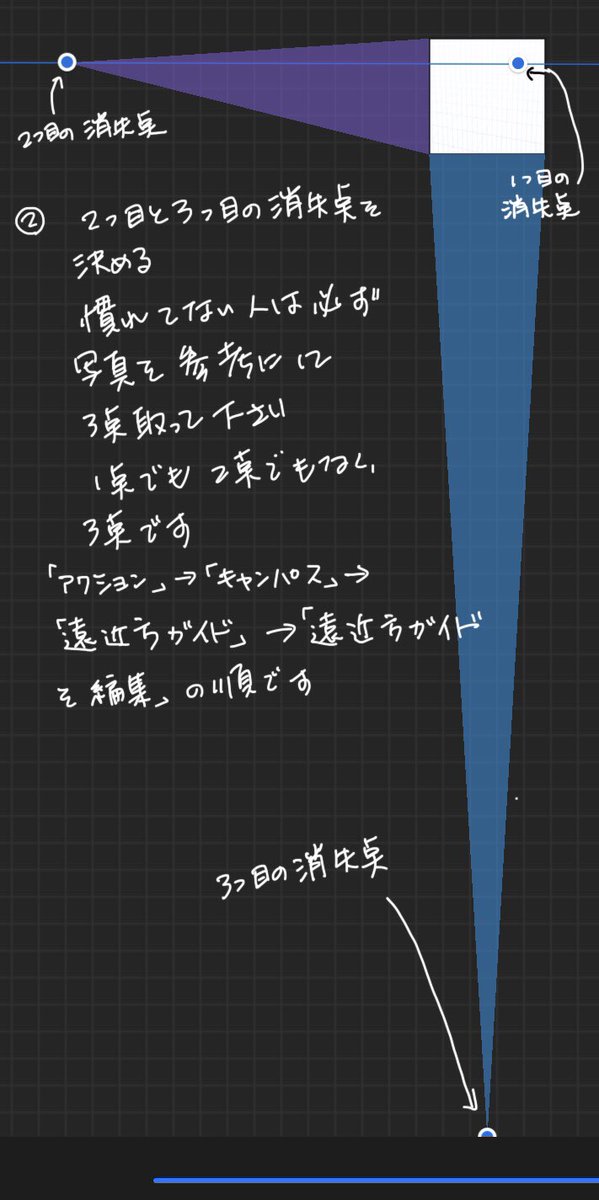 2つ目の消失点
1つ目の
消失点
② 2つ目と3つ目の消失点を
決める
慣れてない人は必ず
写真を参考にして
3点取って下さい
1点でも2点でもなく
3点です
「アクション」→「キャンパス」→
「遠近方ガイド」→「遠近方ガイド
を編集」の順です
3つ目の消失点